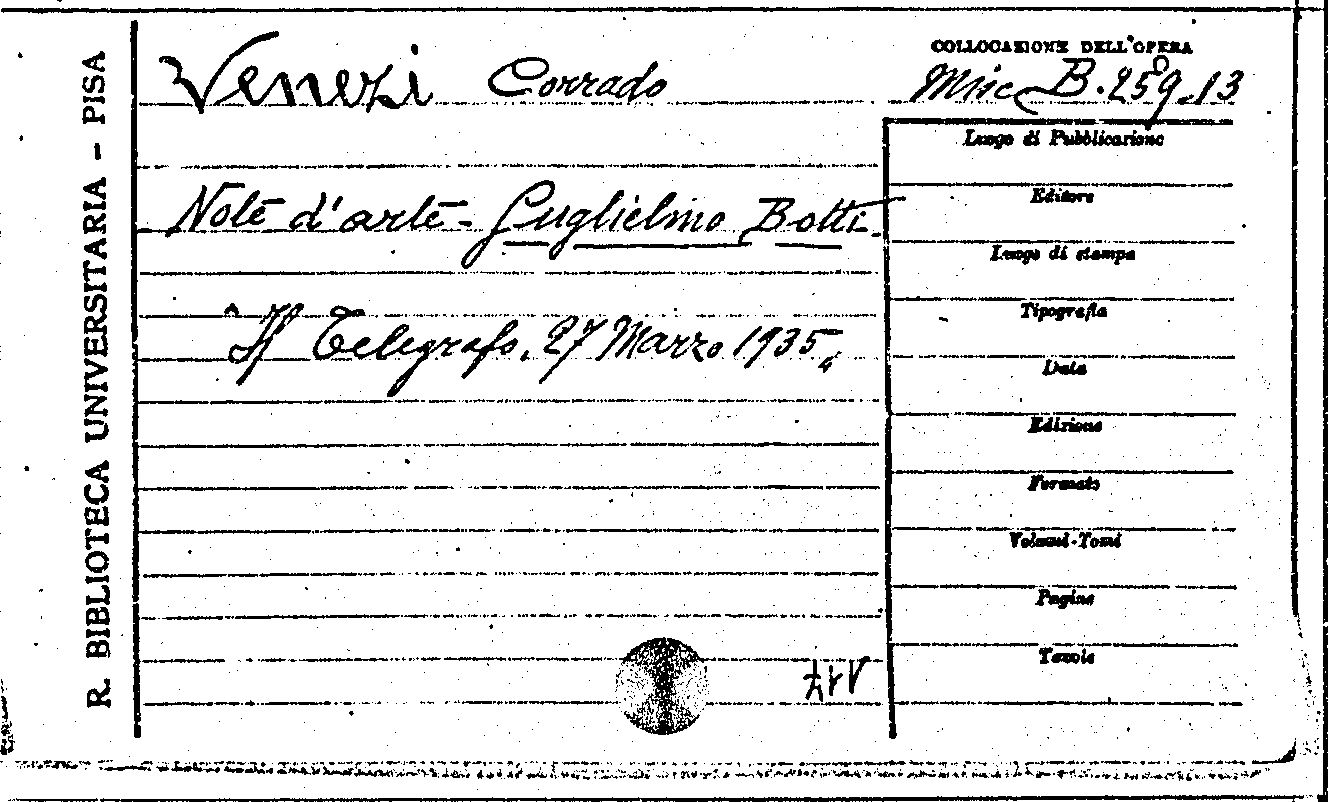 R. BIBLIOTECA UNIVERSITARIA - PISA
Venezi Corrado
COLLOCAZIONE DELL'OPERA
Misc B. 259.13
Note d'arte - Guglielmo Botti.
Il Telegrafo, 27 Marzo 1935.
Luogo di Pubblicazione
Editore
Luogo di stampa
Tipografia
Data
Edizione
Formato
Volumi-Tomi
Pagine
Tavole